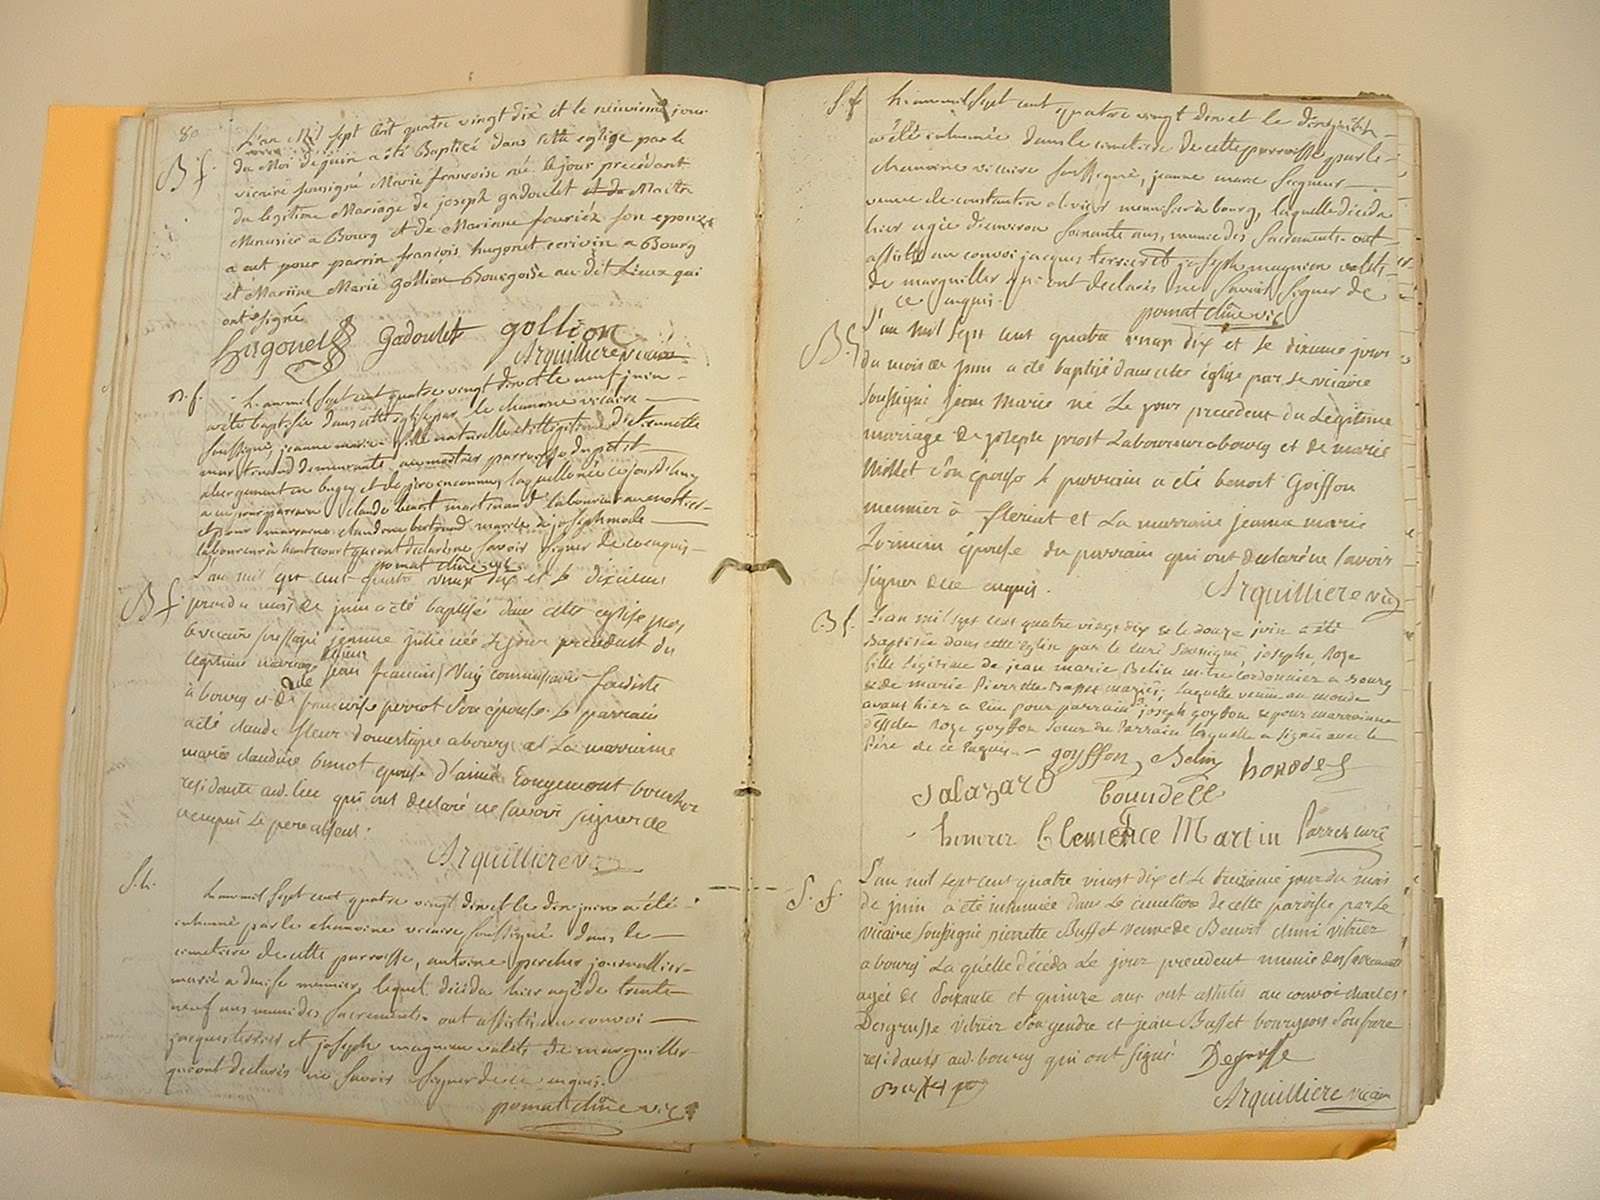 80
L'an Mil sept cent quatre vingt dix et le neuvieme jour
B f. du Moi de juin a été Baptizé dans cette eglise par le
vicaire sousigné Marie francoise né le jour precédant
du legitime Mariage de joseph gadoulet et du Maitre
Menusier a Bourg et de Marianne fouriéx son epouze
a eut pour parrin françois hugonet ecrivin a Bourg
et Mariine Marie gollion Bourgoise au dit Lieux qui
ont signé
hugonet gadoulet gollion
Arquilliere vicaire
B. f. L'an mil sept cent quatre vingt dix et le neuf juin
a été baptisée dans cette eglise par le chanoine vicaire
soussigné, jeanne marie fille naturelle et illegitime de
demeurante parroisse du petit
abergement en bugey et de père inconnu, laquelle née ce jourd'huy
a eu pour parrain claude benoit martinand laboureur
et pour marraine claudine bertrand mariée à joseph
laboureur à hautecourt qui ont declarés ne savoir signer de ce enquis
pomat chne vic
L'an mil sept cent quatre vingt dix et le dixieme
B f. jour du mois de juin a été baptisée dans cette eglise par
le vicaire soussigné jeanne julie née le jour precedent du
legitime mariage de sieur jean francois Vuy commissaire feudiste
à bourg et de francoise perrot son épouse. le parrain
a été claude fleur domestique a bourg et La marraine
marie claudine binot epouse d'aimé Rougemont boucher
residante aud. lieu qui ont declaré ne savoir signer de
ce enquis le pere absent.
Arquilliere vic
S. h. L'an mil sept cent quatre vingt dix et le dix juin a été
inhumé par le chanoine vicaire soussigné dans le
cimetiere de cette parroisse, antoine percher journallier
marié a denise meunier, lequel décéda hier agé de trente
neuf ans muni des sacrements. ont assisté au convoi
jacques terrier et joseph magnien valets de marguiller
qui ont declarés ne savoir signer de ce enquis.
pomat chne vic
S. f. L'an mil sept cent quatre vingt dix et le dix juin
a été inhumée dans le cimetiere de cette parroisse par le
chanoine vicaire soussigné, jeanne marie seigneur
veuve de constantin olivier menusier à bourg, laquelle décéda
hier agée d'environ soixante ans, munie des sacrements. ont
assisté au convoi jacques terrier et joseph magnien valets
de marguiller qui ont declarés ne savoir signer de
ce enquis.
pomat chne vic
B. f. L'an mil sept cent quatre vingt dix et le dixieme jour
du mois de juin a été baptisé dans cette église par le vicaire
soussigné jean marie né le jour precedent du légitime
mariage de joseph prost laboureur a bourg et de marie
Mollet son epouse le parrain a été benoit Goiffon
meunier à fleriat et la marraine jeanne marie
épouse du parrain qui ont declaré ne savoir
signer de ce enquis.
Arquilliere vic
B. f. L'an mil sept cent quatre vingt dix & le douze juin a été
Baptisée dans cette Eglise par le curé soussigné, josephe Roze
fille legitime de jean marie Belin m.tre cordonnier a Bourg
& de marie Pierrette Basset mariés; laquelle venue au monde
avant hier a Eue pour parrain sr joseph goyffon & pour marrainne
d.lle Roze goyffon soeur du Parrain laquelle a signé avec le
Père de ce Enquis.
goyffon Belin honoré
Salazard boundell
himer Clemence Martin Parres curé
S. f. L'an mil sept cent quatre vingt dix et le treizieme jour du mois
de juin a été inhumée dans le cimetiere de cette paroisse par le
vicaire soussigné pierrette Busset veuve de Benoit vitrier
a bourg La quelle décéda le jour precedent munie des sacrements
agée de soixante et quinze ans ont assistés au convoi charles
Degrusse vitrier son gendre et jean Busset bourgeois son frere
residants aud. bourg qui ont signé Degrusse
Busset
Arquilliere vicaire